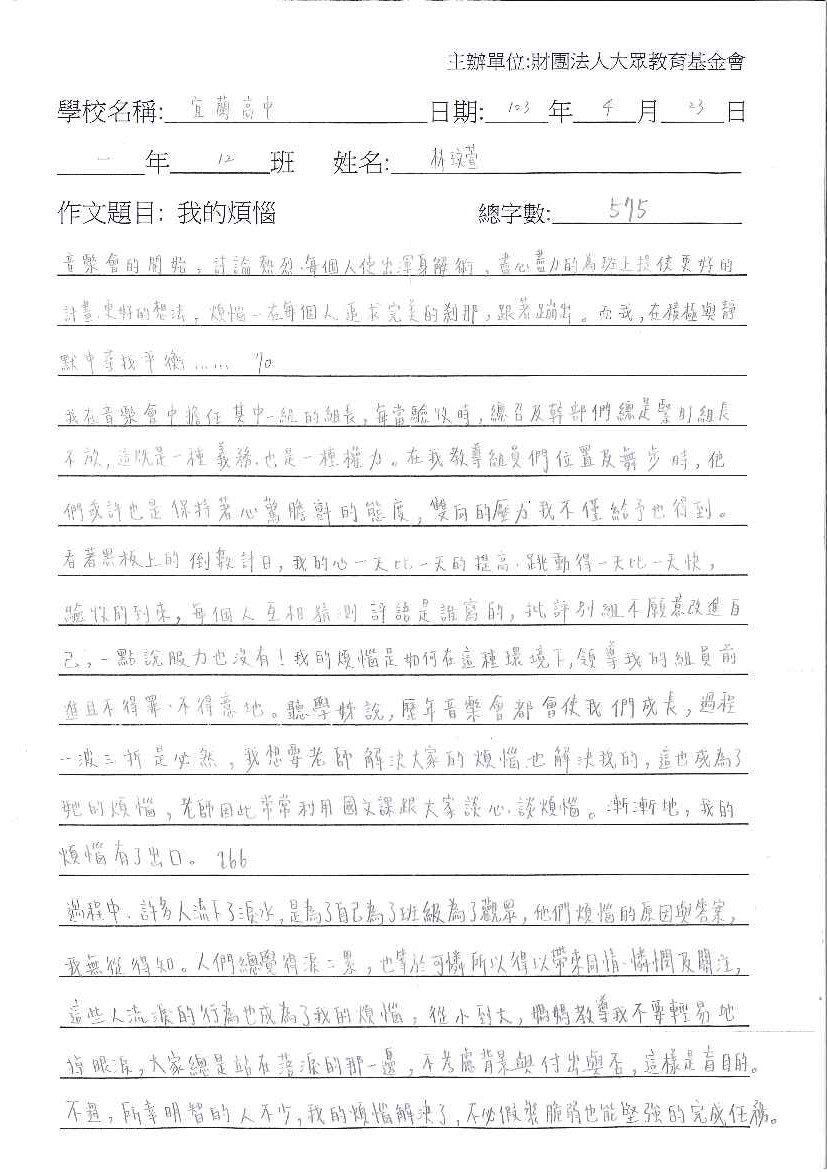 主辦單位:財團法人大眾教育基金會
學校名稱: 宜蘭高中 日期: 103 年 4 月 23 日
一 年 12 班 姓名: 林玟萱
作文題目: 我的煩惱 總字數: 575
音樂會的開始,討論熱烈、每個人使出渾身解術,盡心盡力的為班上提供更好的
計畫、更好的想法,煩惱一在每個人追求完美的剎那,跟著蹦出。而我,在積極與靜
默中尋找平衡…… 70
我在音樂會中擔任其中一組的組長,每當驗收時,總召及幹部們總是緊盯組長
不放,這既是一種義務、也是一種權力。在我教導組員們位置及舞步時,他
們或許也是保持著心驚膽顫的態度,雙向的壓力我不僅給予也得到。
看著黑板上的倒數計日,我的心一天比一天的提高、跳動得一天比一天快,
驗收的到來,每個人互相猜測評語是誰寫的,批評別組不願意改進自
己,一點說服力也沒有!我的煩惱是如何在這種環境下,領導我的組員前
進且不得罪、不得意地。聽學姊說,歷年音樂會都會使我們成長,過程
一波三折是必然,我想要老師解決大家的煩惱也解決我的,這也成為了
她的煩惱,老師因此常常利用國文課跟大家談心、談煩惱。漸漸地,我的
煩惱有了出口。 266
過程中、許多人流下了淚水,是為了自己為了班級為了觀眾,他們煩惱的原因與答案,
我無從得知。人們總覺得淚二累,也等於可憐所以得以帶來同情、憐憫及關注,
這些人流淚的行為也成為了我的煩惱,從小到大,媽媽教導我不要輕易地
掉眼淚,大家總是站在落淚的那一邊,不考慮背景與付出與否,這樣是盲目的。
不過,所幸明智的人不少,我的煩惱解決了,不必假裝脆弱也能堅強的完成任務。